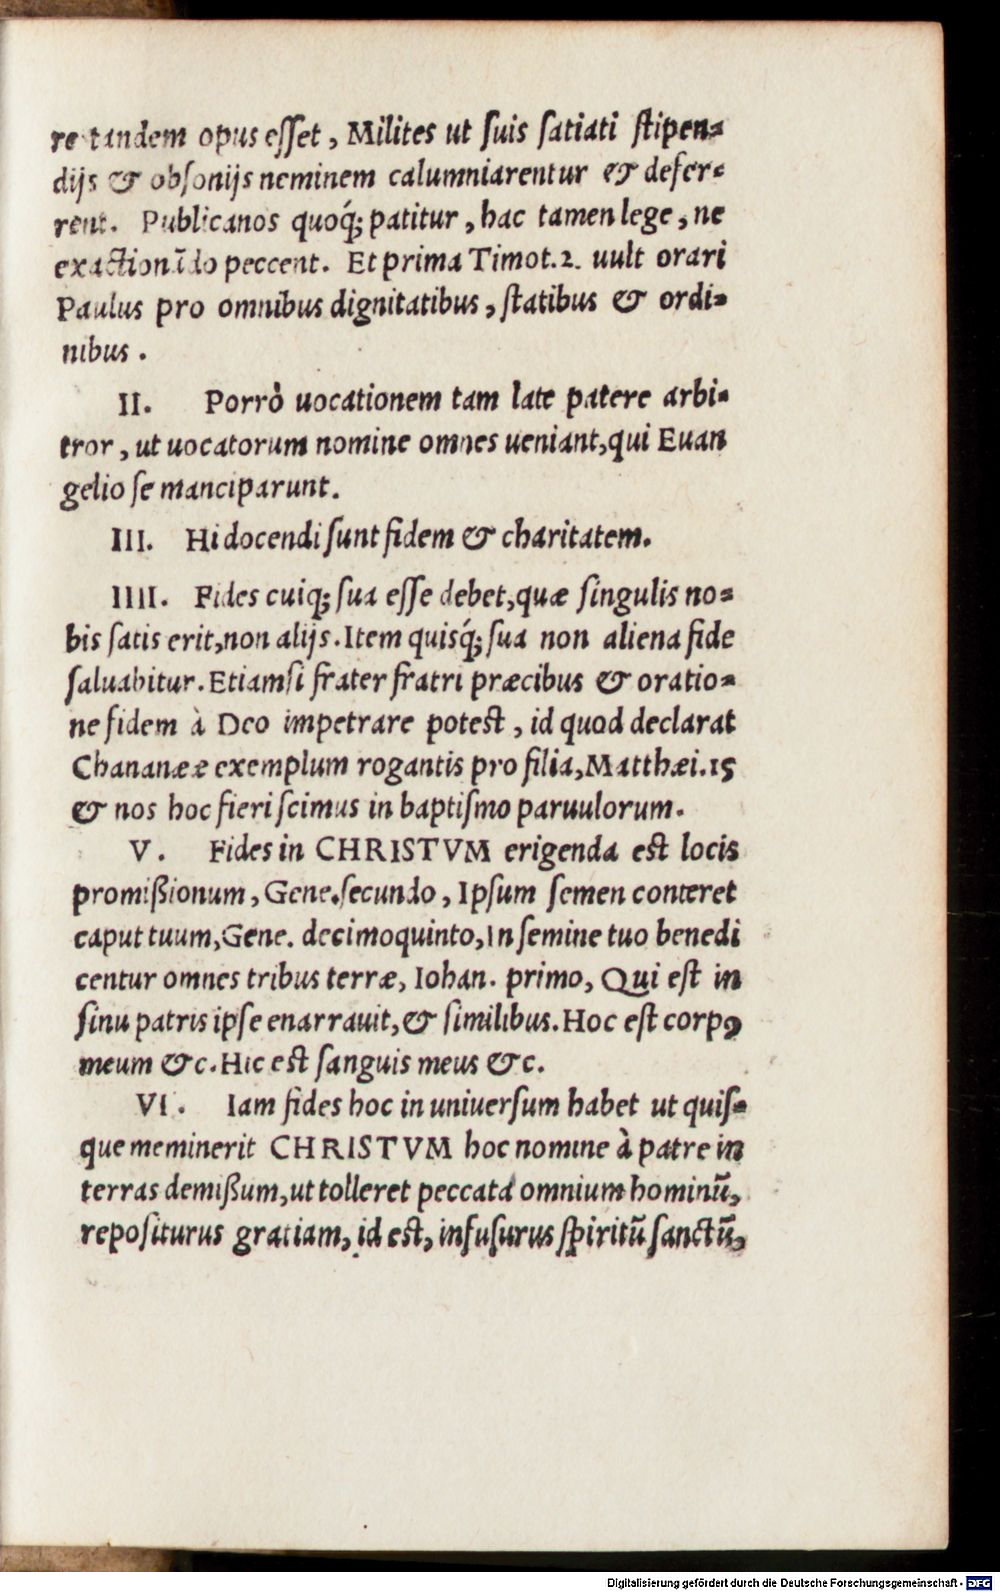 re tandem opus eſſet, Milites ut ſuis ſatiati ſtipen=
dijs & obſonijs neminem calumniarentur & defer=
rent. Publicanos quoq́; patitur, hac tamen lege, ne
exactionĩdo peccent. Et prima Timot.2. uult orari
Paulus pro omnibus dignitatibus, ſtatibus & ordi=
nibus.
II. Porrò uocationem tam late patere arbi=
tror, ut uocatorum nomine omnes ueniant, qui Euan
gelio ſe manciparunt.
III. Hi docendi ſunt fidem & charitatem.
IIII. Fides cuiq; ſua eſſe debet, quæ ſingulis no=
bis ſatis erit, non alijs. Item quisq́; ſua non aliena fide
ſaluabitur. Etiamſi frater fratri præcibus & oratio=
ne fidem à Deo impetrare poteſt, id quod declarat
Chananææ exemplum rogantis pro filia, Matthæi.15
& nos hoc fieri ſcimus in baptiſmo paruulorum.
V. Fides in CHRISTVM erigenda eſt locis
promißionum, Gene.ſecundo, Ipſum ſemen conteret
caput tuum, Gene. decimoquinto, In ſemine tuo benedi
centur omnes tribus terræ, Iohan. primo, Qui eſt in
ſinu patris ipſe enarrauit, & ſimilibus. Hoc eſt corpꝰ
meum &c. Hic eſt ſanguis meus &c.
VI. Iam fides hoc in uniuerſum habet ut quiſ=
que meminerit CHRISTVM hoc nomine à patre in
terras demißum, ut tolleret peccata omnium hominũ,
repoſiturus gratiam, id eſt, infuſurus ſpiritũ ſanctũ,
Digitalisierung gefördert durch die Deutsche Forschungsgemeinschaft - DFG